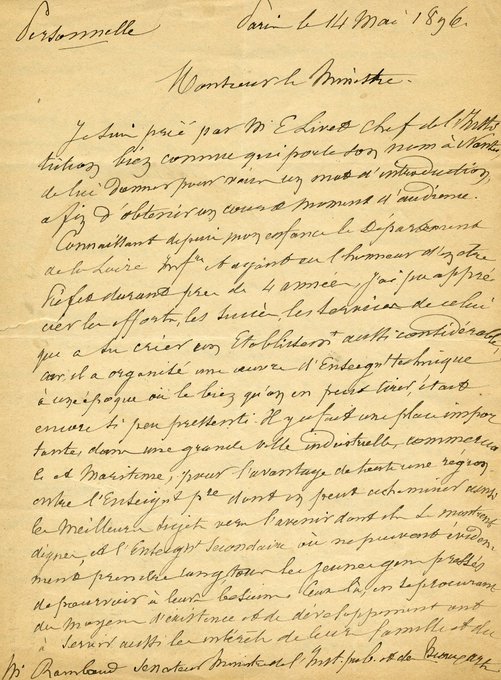 Personnelle Paris le 14 Mai 1896.
Monsieur le Ministre.
Je suis prié par Mr E Livet Chef de l'Insti
tution bien connue qui porte son nom à Nantes
de lui donner pour vous un mot d'introduction,
afin d'obtenir un court moment d'audience.
Connaissant depuis mon enfance le Département
de la Loire Infre et ayant eu l'honneur d'en être
Préfet durant près de 4 années, j'ai pu appré
cier les efforts, les succès, les services de celui
qui a su créer un Etablissemt aussi considérable,
car, il a organisé une œuvre d'Enseignt technique
à une époque où le bien qu'on en peut tirer, était
encore si peu pressenti. Il y a fait une place impor
tante, dans une grande ville industrielle, commercia
le et Maritime, pour l'avantage de toute une région,
entre l'Enseignt pre dont on peut acheminer ainsi
les Meilleurs Sujets vers l'avenir dont ils se montrent
dignes, et l'Enseignt Secondaire où ne peuvent évidem
ment, prendre rang tous les jeunes gens pressés
de pourvoir à leurs besoins. Ceux là, en se procurant
des Moyens d'existence et de développement ont
à servir aussi les intérêts de leur famille et du
Mr Rambaud Senateur Ministre de l'Inst. pub. et des Beaux arts